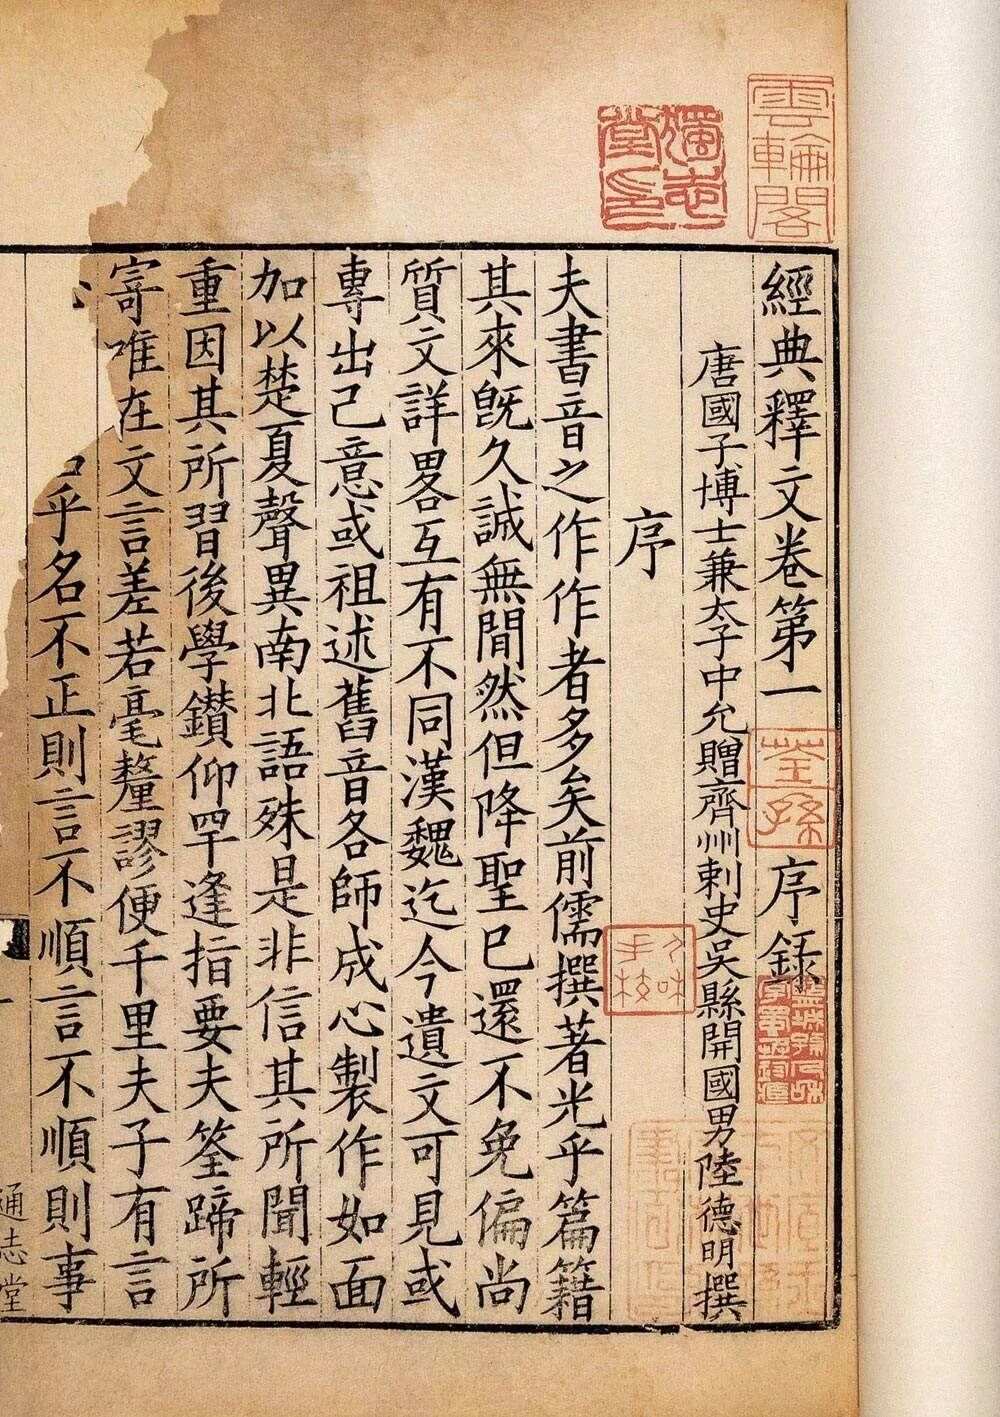 經典釋文卷第一 序錄
唐國子博士兼太子中允贈齊州刺史吳縣開國男陸德明撰
序
夫書音之作作者多矣前儒撰著光乎篇籍
其來旣久誠無閒然但降聖已還不免偏尚
質文詳畧互有不同漢魏迄今遺文可見或
專出己意或祖述舊音各師成心製作如面
加以楚夏聲異南北語殊是非信其所聞輕
重因其所習後學鑽仰罕逢指要夫筌蹄所
寄唯在文言差若毫釐謬便千里夫子有言
乎名不正則言不順言不順則事
通志堂
雲輪閣
荃孫